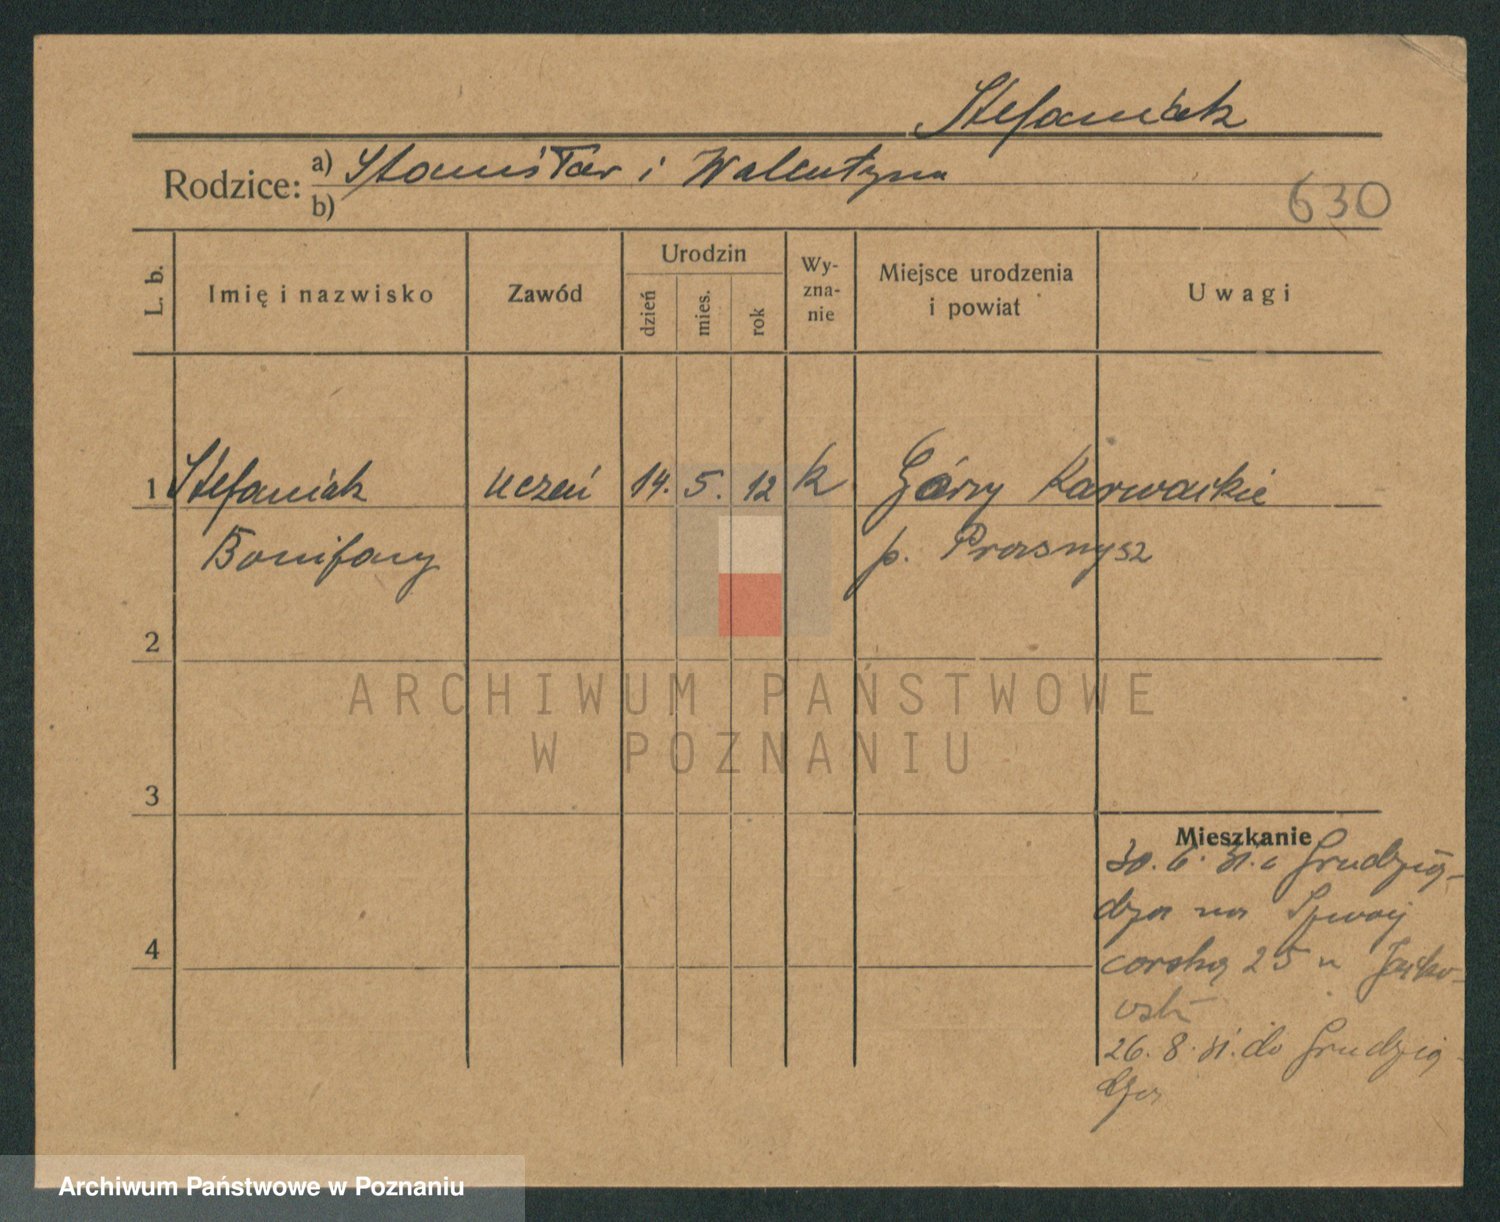 Stefaniak
Rodzice: a) Stanisław i Walentyna
b)
630
L. b.
Imię i nazwisko
Zawód
Urodzin
dzień
mies.
rok
Wy-
zna-
nie
Miejsce urodzenia
i powiat
Uwagi
1 Stefaniak uczeń 14. 5. 12 k Góry Karwackie
Bonifacy p. Prasnysz
2
3
4
Mieszkanie
30. 6. 31. z Grudzią-
dza na
25 u Jaśko-
26. 8. 31. do Grudzią-
dza
ARCHIWUM PAŃSTWOWE
W POZNANIU
Archiwum Państwowe w Poznaniu